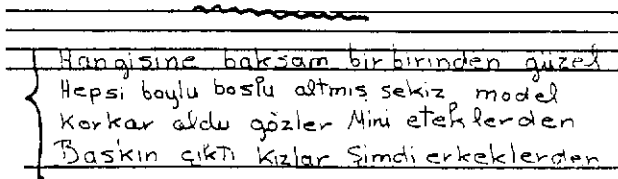 Hangisine baksam birbirinden güzel
Hepsi boylu boslu altmış sekiz model
Korkar oldu gözler Mini eteklerden
Baskın çıktı Kızlar Şimdi erkeklerden